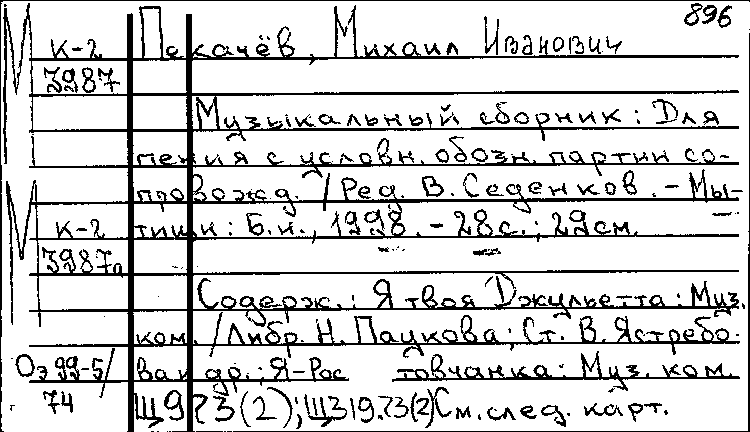 896
М К-2 Пекачёв, Михаил Иванович
3987
Музыкальный сборник: Для
пения с условн. обозн. партии со-
провожд. / Ред. В. Седенков. - Мы-
М К-2 тищи: Б.и., 1998. - 28с.; 29см.
3987а
Содерж.: Я твоя Джульетта: Муз.
ком. / Либр. Н. Пацкова; Ст. В. Ястребо-
Оэ 99-5/ ва и др.; Я-Рос товчанка: Муз. ком.
74 Щ9?3(2); Щ319.?3(2) См. след. карт.